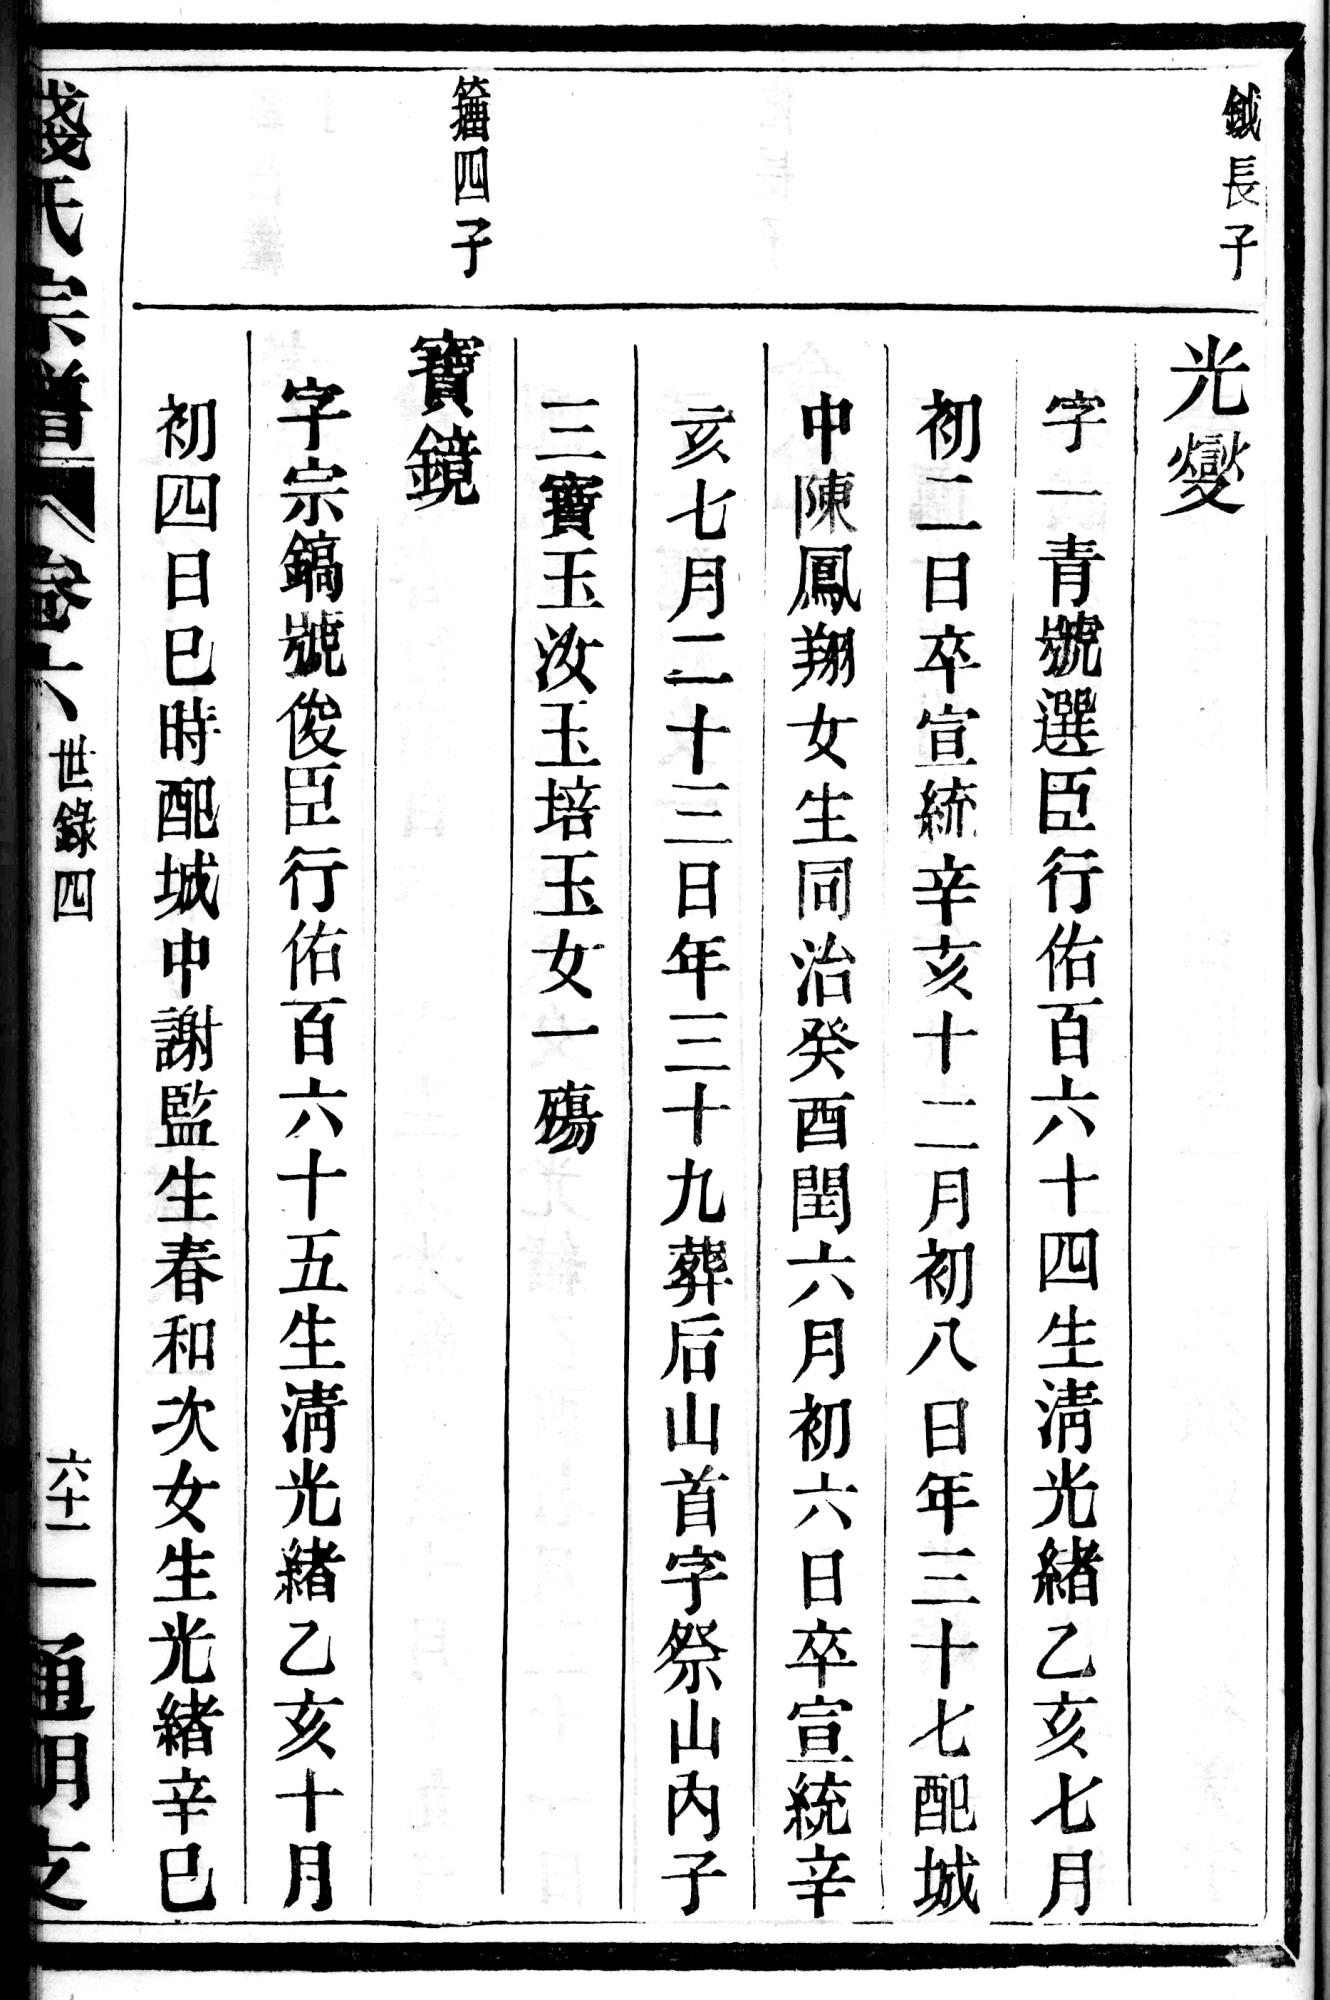 鉞長子
光燮
字一青號選臣行佑百六十四生清光緒乙亥七月
初二日卒宣統辛亥十二月初八日年三十七配城
中陳鳳翔女生同治癸酉閏六月初六日卒宣統辛
亥七月二十三日年三十九葬后山首字祭山內子
三寶玉汝玉培玉女一殤
籀四子
寶鏡
字宗鎬號俊臣行佑百六十五生清光緒乙亥十月
初四日巳時配城中謝監生春和次女生光緒辛巳
錢氏宗譜 卷六 世錄四 六十一 通明支